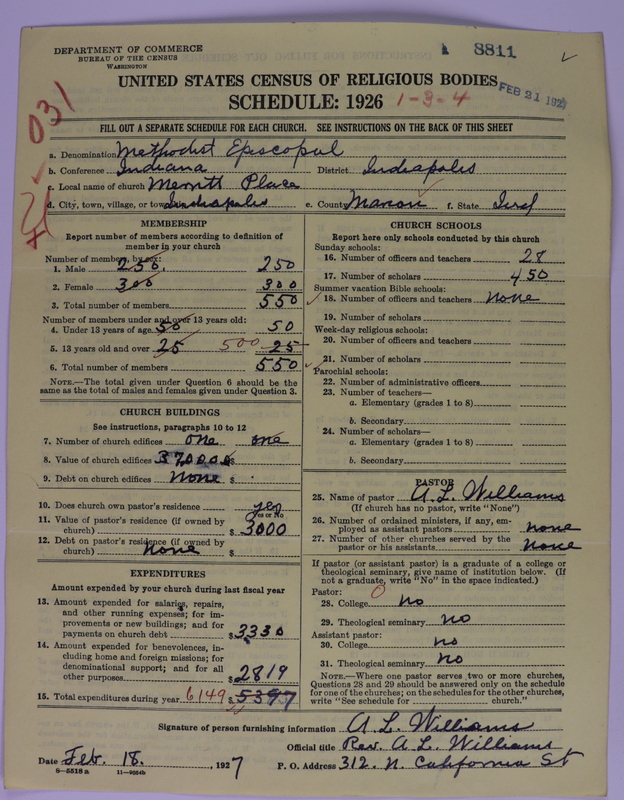 DEPARTMENT OF COMMERCE
BUREAU OF THE CENSUS
WASHINGTON
8811
UNITED STATES CENSUS OF RELIGIOUS BODIES
FEB 21 192
SCHEDULE: 1926 1-3-4
031
FILL OUT A SEPARATE SCHEDULE FOR EACH CHURCH. SEE INSTRUCTIONS ON THE BACK OF THIS SHEET
a. Denomination Methodist Episcopal
b. Conference Indiana District Indiapolis
c. Local name of church Merritt Place
d. City, town, village, or town Indiapolis e. County Marion f. State Ind
MEMBERSHIP
Report number of members according to definition of
member in your church
Number of members, by sex:
1. Male 250 250
2. Female 300 300
3. Total number of members 550
Number of members under and over 13 years old:
4. Under 13 years of age 50 50
5. 13 years old and over 25 500 25
6. Total number of members 550
NOTE.—The total given under Question 6 should be
same as the total of males and females given under Question 3.
CHURCH BUILDINGS
See instructions, paragraphs 10 to 12
7. Number of church edifices one one
8. Value of church edifices 37000 $
9. Debt on church edifices None $
10. Does church own pastor's residence yes
Yes or No
11. Value of pastor's residence (if owned by
church) $ 3000
12. Debt on pastor's residence (if owned by
church) none $
EXPENDITURES
Amount expended by your church during last fiscal year
13. Amount expended for salaries, repairs,
and other running expenses; for im-
provements or new buildings; and for
payments on church debt $ 3330
14. Amount expended for benevolences, in-
cluding home and foreign missions; for
denominational support; and for all
other purposes $ 2819
15. Total expenditures during year 6149 $ 5397
CHURCH SCHOOLS
Report here only schools conducted by this church
Sunday schools:
16. Number of officers and teachers 28
17. Number of scholars 450
Summer vacation Bible schools:
18. Number of officers and teachers none
19. Number of scholars
Week-day religious schools:
20. Number of officers and teachers
21. Number of scholars
Parochial schools:
22. Number of administrative officers
23. Number of teachers—
a. Elementary (grades 1 to 8)
b. Secondary
24. Number of scholars—
a. Elementary (grades 1 to 8)
b. Secondary
PASTOR
25. Name of pastor A. L. Williams
(If church has no pastor, write "None")
26. Number of ordained ministers, if any, em-
ployed as assistant pastors none
27. Number of other churches served by the
pastor or his assistants None
If pastor (or assistant pastor) is a graduate of a college or
theological seminary, give name of institution below. (If
not a graduate, write "No" in the space indicated.)
Pastor: 0
28. College no
29. Theological seminary no
Assistant pastor:
30. College no
31. Theological seminary no
NOTE.—Where one pastor serves two or more churches,
Questions 28 and 29 should be answered only on the schedule
for one of the churches; on the schedules for the other churches,
write "See schedule for church."
Signature of person furnishing information A L Williams
Official title Rev. A. L. Williams
Date Feb. 18. , 1927 P. O. Address 312. N. California St
8—5518a 11—9554b